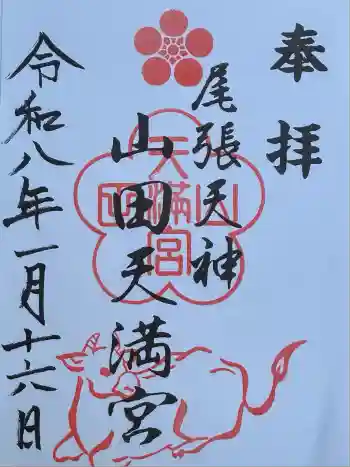 奉拝
尾張天神
山田天満宮
令和八年一月十六日
山田天満宮